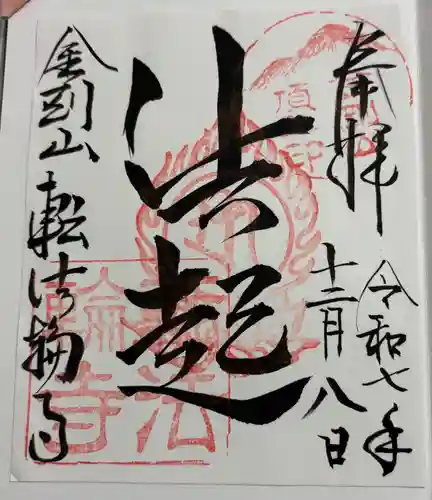 奉拝
令和七年
十二月八日
法起
金剛山
転法輪寺
頂
印
轉法
輪寺